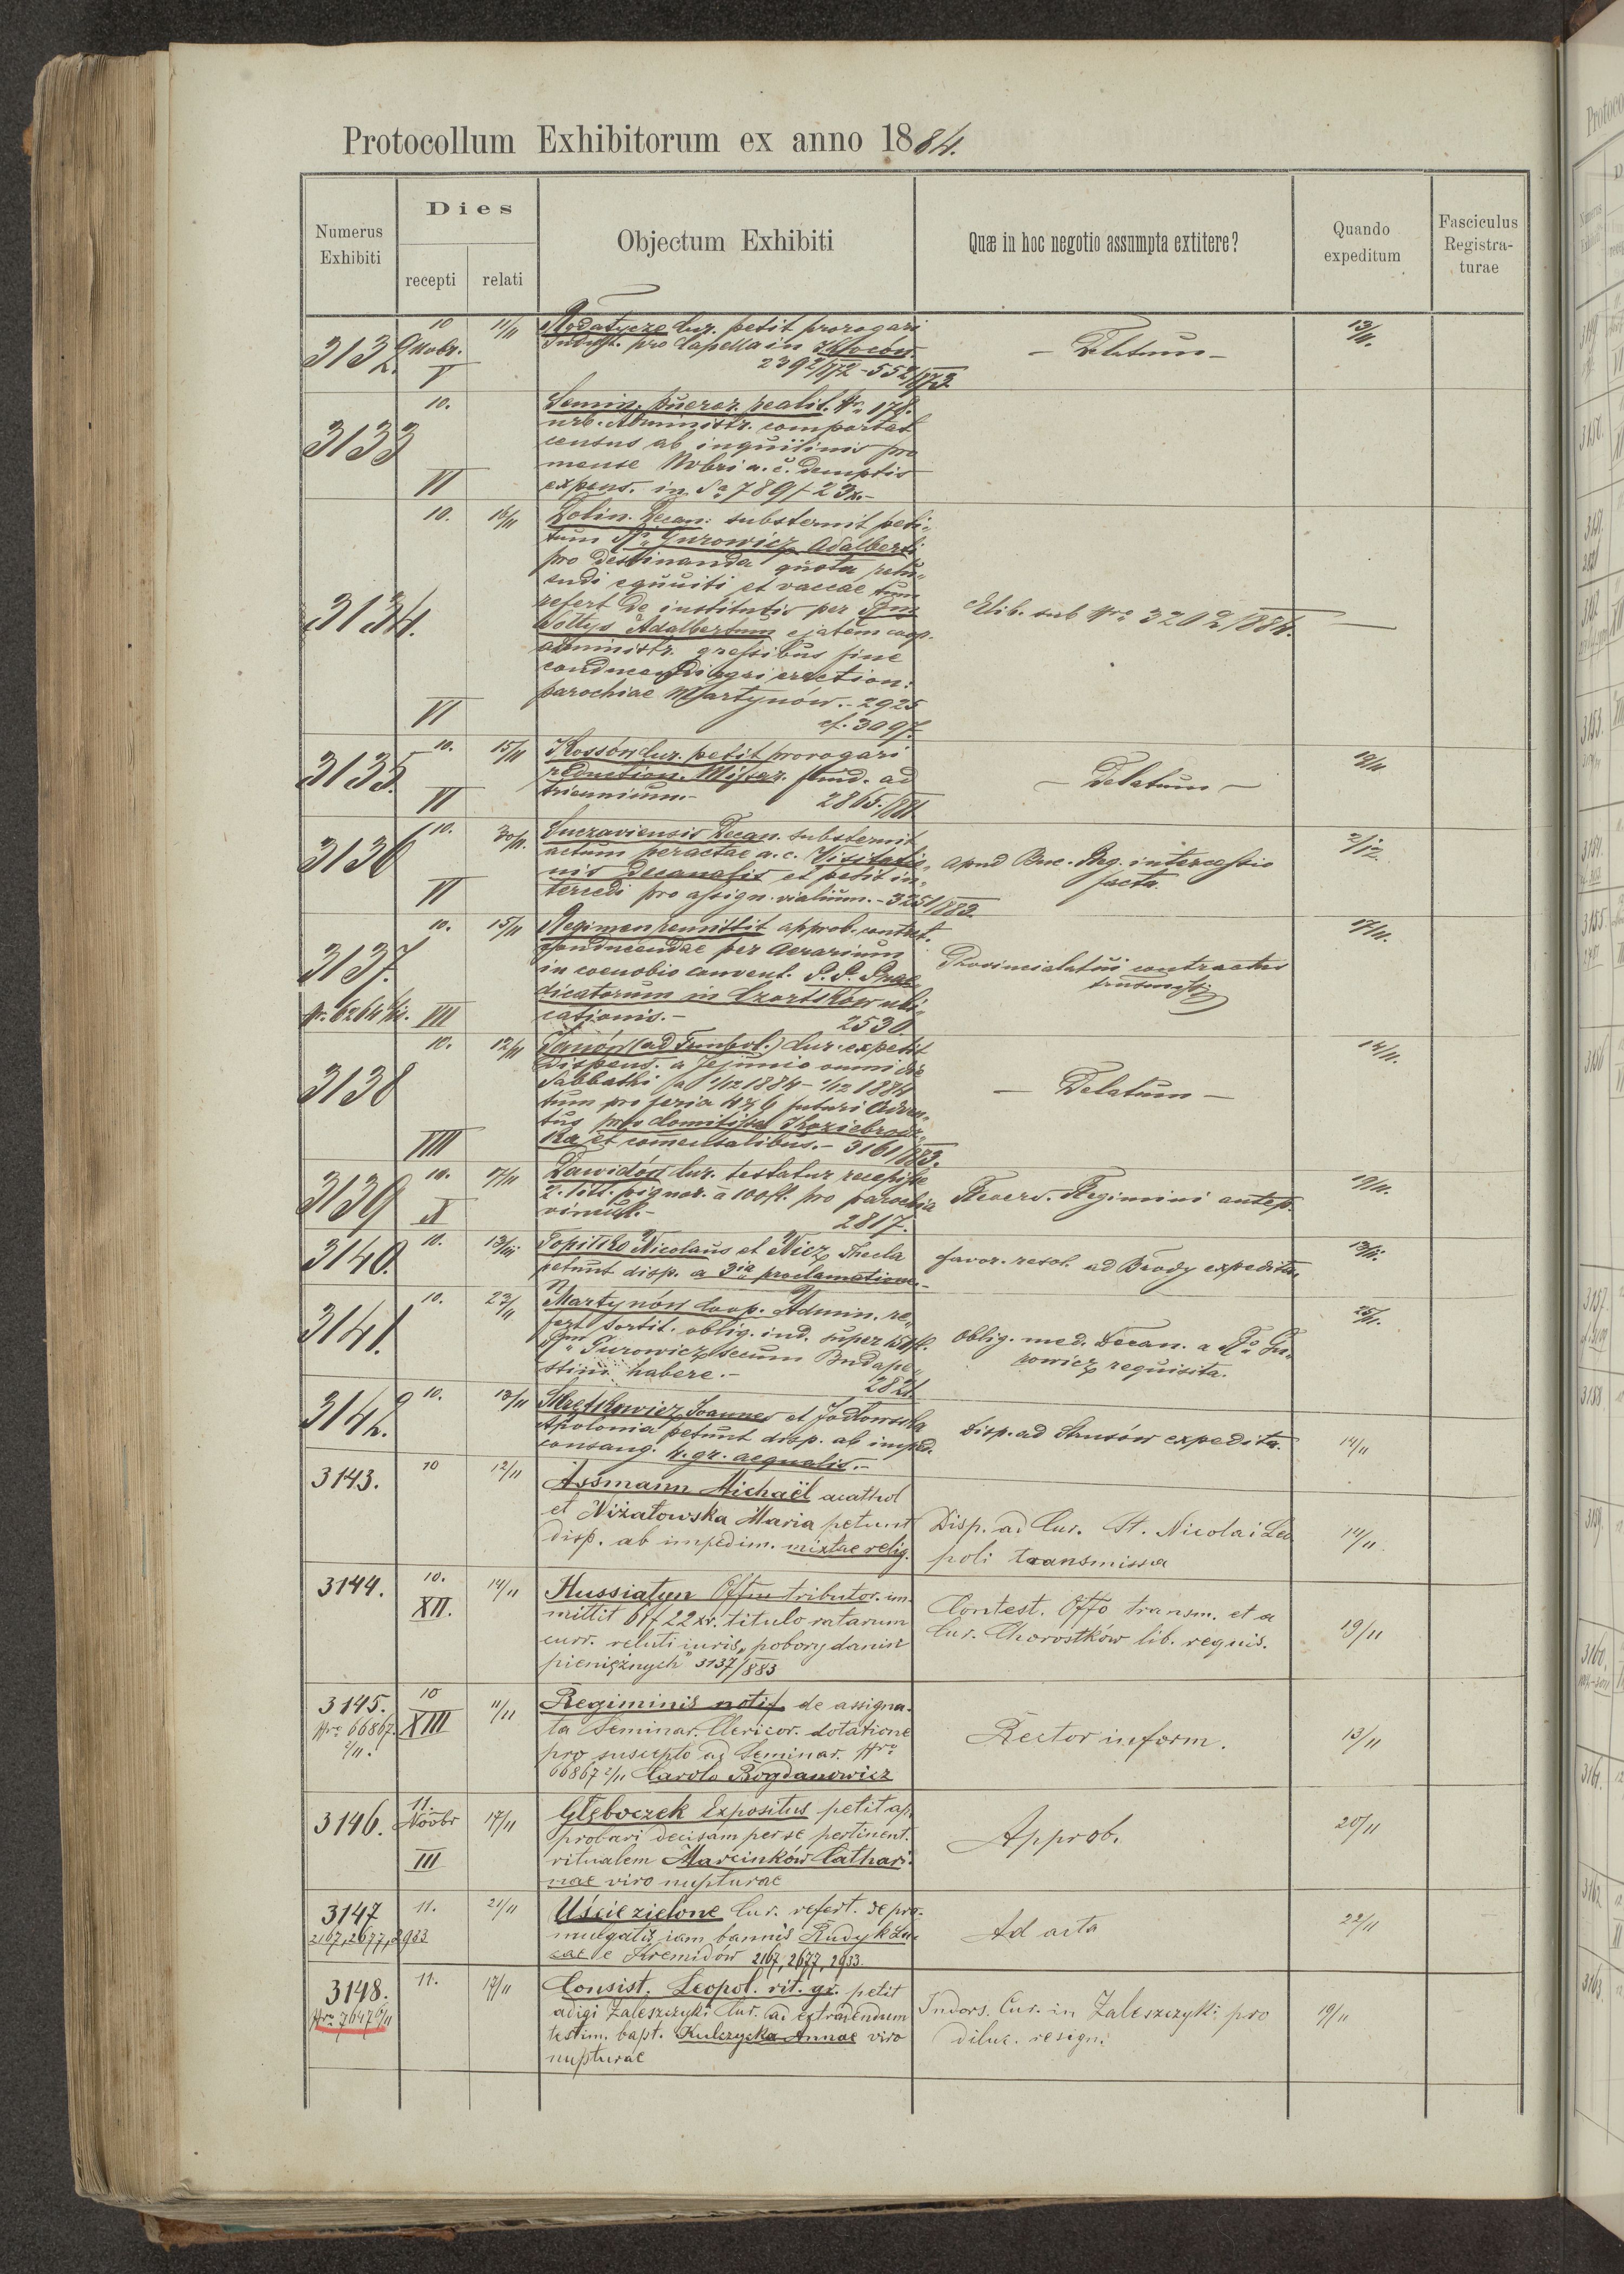 Protocollum Exhibitorum ex anno 1884.
Numerus Exhibiti
Dies
recepti
relati
Objectum Exhibiti
Quæ in hoc negotio assumpta extitere?
Quando expeditum
Fasciculus Registra-turae
3132. 10 9nobr. V 11/11
Rodatycze Cur. petit prorogari
Indult. pro Capella in
2392/872 - 552/873.
— Delatum —
13/11.
3133 10. VI
Semin. pueror. realit. Nr. 178.
urb. Administr. comportat
census ab inquilinis pro
mense Nobri a. c. demptis
expens. in Sa 789 f 23x.—
3134. 10. VI 16/11
Dolin. Decan. substernit peti-
tum Rdi Gurowicz Adalberti
pro destinanda quota
et vaccae tum
refert de institutis per
Adalbertum ejatem coop.
administr. gressibus fine
conducendi agri erection.
parochiae Martynów.- 2925
cf. 3097.
Elib. sub Nro 3202/884. —
3135. 10. VI 15/11
Kossów Cur. petit prorogari
reduction. Missar. fund. ad
triennium.- 2865./881.
— Delatum —
18/11
3136 10. VI 30/11.
Suczaviensis Decan. substernit
actum peractae a. c. Visitatio-
nis Decanalis et petit in-
tercedi pro assign. viatium. - 3251/883.
apud Buc. Reg. intercessio
facta.
2/12.
3137. Nr. 6264 VII 10. 15/11
Regimen remittit approb. contract.
conducendae per Aerarium
in coenobio convent. P. P. Prae-
dicatorum in Czortków ubi-
cationis.- 2530.
Provincialatui contractus
17/11.
3138 10. VIII 12/11
Janów (ad Trembol.) Cur. expetit
dispens. a jejunio omni die
Sabbathi ad 1/12 1884 -
tum pro feria 4 & 6 futuri Adven-
tus pro comitissa Koziebrodz-
ka et comensalibus.- 3161/883.
— Delatum —
14/11.
3139 10. X 17/11
Dawidów Cur. testatur recepisse
2. litt. pignor. à 100fl. pro parochia
vincul.- 2817.
Revers. Regimini antep.
19/11.
3140. 10. 13/11
Topitko Nicolaus et Nicz Thecla
petunt disp. a 3ia proclamatione.-
favor. resol. ad Brody expedita.
13/11.
3141. 10. 23/11
Martynów Coop. Admin. re-
fert sortit. oblig. ind. super
Gurowicz secum Budape-
stini habere.- 2821.
Oblig. med. Decan. a Rdo Gu-
rowicz requisita.
25/11.
3142. 10. 13/11
Joannes et Jodłowska
Apolonia petunt disp. ab imped.
consang. 4. gr. aequalis.-
Disp. ad Strusów expedita.
14/11
3143. 10 12/11
Assmann Michaël acathol
et Niżałowska Maria petunt
disp. ab impedim. mixtae relig.
Disp. ad Cur. St. Nicolai Leo
poli transmissa
14/11
3144. 10. XII. 14/11
Hussiatyn Offm tributor. im-
mittit 61 f 22 xr. titulo ratarum
curr. reluti iuris „pobory danin
pieniężnych" 3137/883
Contest. Offo transm. et a
Cur. Chorostków lib. requis.
19/11
3145. Nro 66867. 2/11. 10 XIII 11/11
Regiminis notif. de assigna-
ta Seminar. Clericor. dotatione
pro suscepto ad Seminar. Nro
66867 2/11 Carolo Bogdanowicz
Rector inform.
13/11
3146. 11. Novbr III 17/11
Głęboczek Expositus petit ap-
probari decisam per se pertinent.
ritualem Marcinków Cathari-
nae viro nupturae
Approb.
20/11
3147 2167, 2677, 2933 11. 21/11
Uście zielone Cur. refert. de pro-
mulgatis iam bannis Rudyk Lu-
cae e Kremidów 2167, 2677, 2933.
Ad acta
22/11
3148. Nro 7647 6/11 11. 17/11
Consist. Leopol. rit. gr. petit
adigi Zaleszczyk: Cur. ad extradendum
testim. bapt. Kulczycka Annae viro
nupturae
Indors. Cur. in Zaleszczyk: pro
diluc. resign:
19/11